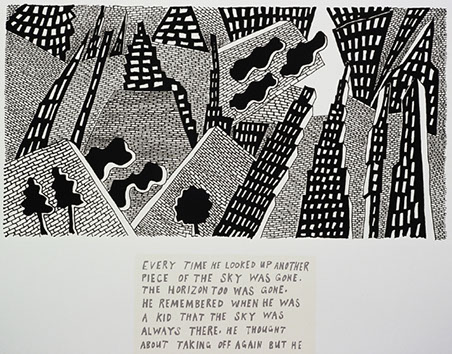 EVERY TIME HE LOOKED UP ANOTHER
PIECE OF THE SKY WAS GONE.
THE HORIZON TOO WAS GONE.
HE REMEMBERED WHEN HE WAS
A KID THAT THE SKY WAS
ALWAYS THERE. HE THOUGHT
ABOUT TAKING OFF AGAIN BUT HE